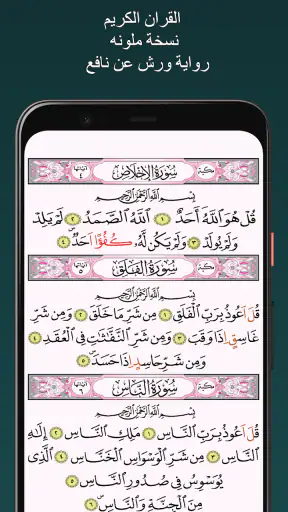 القران الكريم
نسخة ملونه
رواية ورش عن نافع
مكية سُورَةُ الإِخْلَاصِ آياتها ٤
بِسْمِ اللَّهِ الرَّحْمَٰنِ الرَّحِيمِ
قُلْ هُوَ اللَّهُ أَحَدٌ ١ اللَّهُ الصَّمَدُ ٢ لَمْ يَلِدْ
وَلَمْ يُولَدْ ٣ وَلَمْ يَكُن لَّهُ كُفُؤًا اَحَدٌ ٤
مكية سُورَةُ الْفَلَقِ آياتها ٥
بِسْمِ اللَّهِ الرَّحْمَٰنِ الرَّحِيمِ
قُلَ اَعُوذُ بِرَبِّ الْفَلَقِ ١ مِن شَرِّ مَا خَلَقَ ٢ وَمِن شَرِّ
غَاسِقٍ اِذَا وَقَبَ ٣ وَمِن شَرِّ النَّفَّاثَاتِ فِي الْعُقَدِ ٤
وَمِن شَرِّ حَاسِدٍ اِذَا حَسَدَ ٥
مكية سُورَةُ النَّاسِ آياتها ٦
بِسْمِ اللَّهِ الرَّحْمَٰنِ الرَّحِيمِ
قُلَ اَعُوذُ بِرَبِّ النَّاسِ ١ مَلِكِ النَّاسِ ٢ إِلَٰهِ
النَّاسِ ٣ مِن شَرِّ الْوَسْوَاسِ الْخَنَّاسِ ٤ الَّذِي
يُوَسْوِسُ فِي صُدُورِ النَّاسِ ٥
مِنَ الْجِنَّةِ وَالنَّاسِ ٦